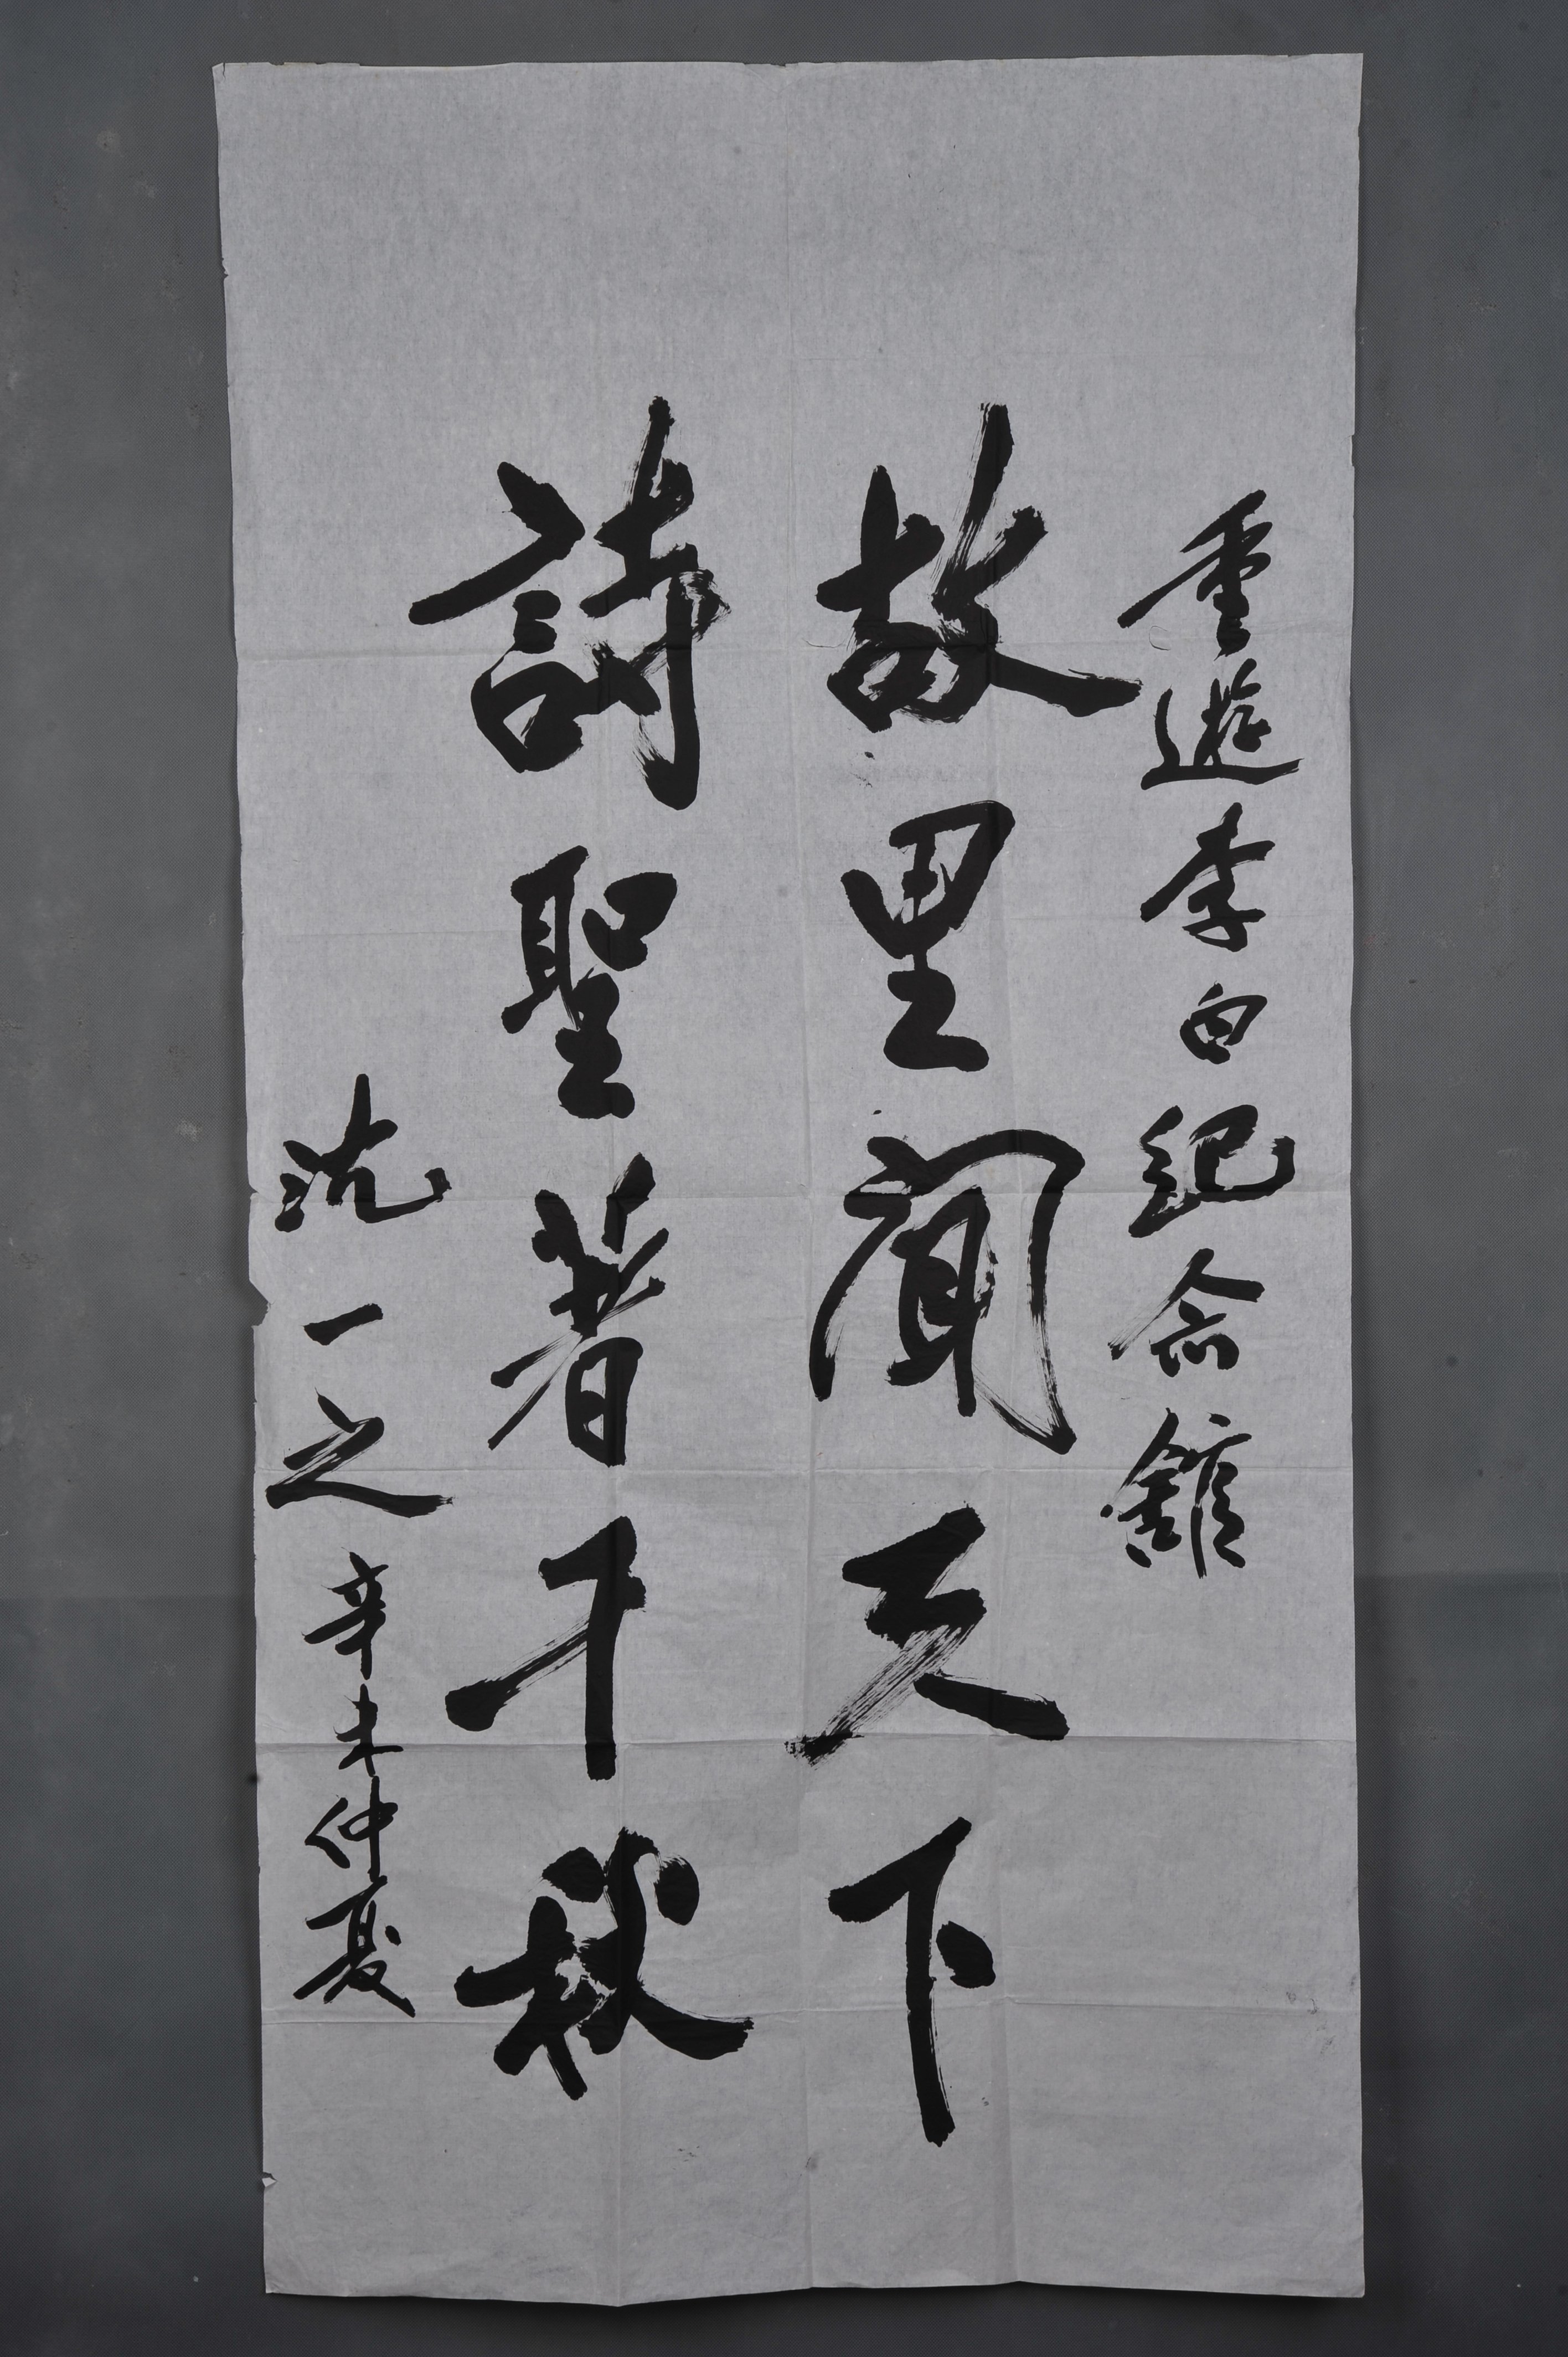 重遊李白紀念館
故里聞天下
詩聖著千秋
沈一之 辛未仲夏